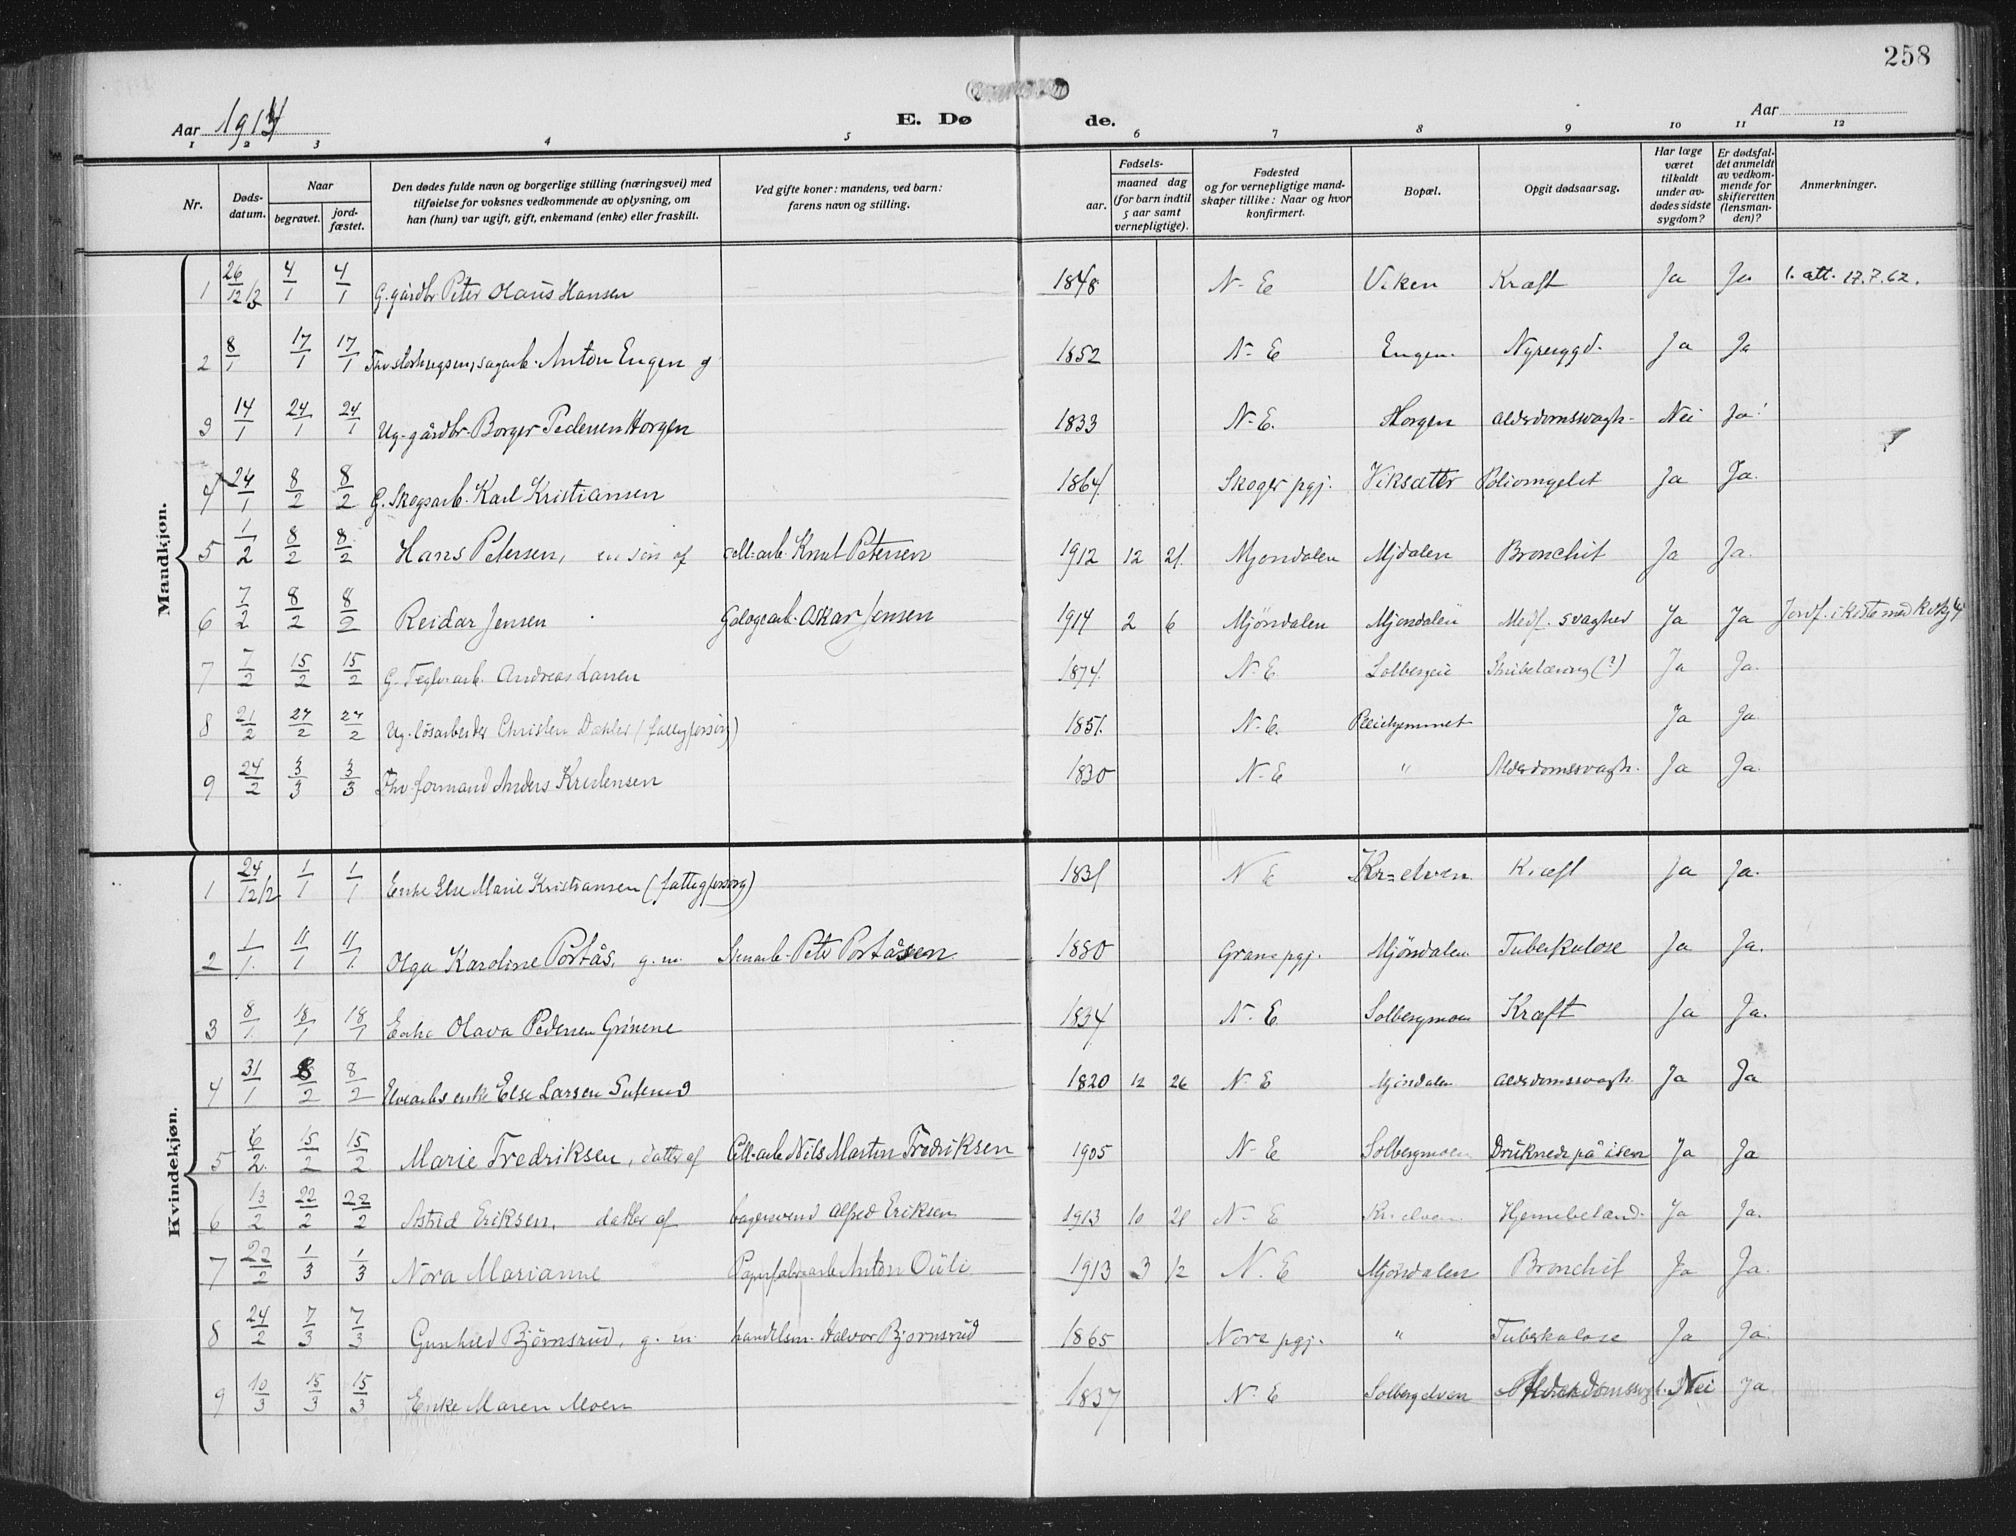 258
Aar 1914 E. Dø de. Aar
1 2 3 4 5 6 7 8 9 10 11 12
Nr. Døds-datum. Naar begravet. jord-fæstet. Den dødes fulde navn og borgerlige stilling (næringsvei) med tilføielse for voksnes vedkommende av oplysning, om han (hun) var ugift, gift, enkemand (enke) eller fraskilt. Ved gifte koner: mandens, ved barn: farens navn og stilling. Fødsels- aar. maaned dag (for barn indtil 5 aar samt vernepligtige). Fødested og for vernepligtige mand-skaper tillike: Naar og hvor konfirmert. Bopæl. Opgit dødsaarsag. Har læge været tilkaldt under av-dødes sidste sygdom? Er dødsfal-det anmeldt av vedkom-mende for skifteretten (lensman-den)? Anmerkninger.
Mandkjøn.
1 26/12 13 4/1 4/1 G. gårdbr Peter Olaus Hansen 1848 N-E Viken Kræft Ja Ja 1. att. 17.7.62.
2 8/1 17/1 17/1 sagarb. Anton Engen g 1852 N-E Engen Nyresygd. Ja Ja
3 14/1 24/1 24/1 Ug. gårdbr. Borger Pedersen Horgen 1833 N-E. Horgen alderdomssvagh. Nei Ja
4 24/1 8/2 8/2 G. Skogsarb. Karl Kristiansen 1864 Skoger pgj. Viksæter Ja Ja.
5 1/2 8/2 8/2 Hans Petersen, en søn af cell-arb. Knut Petersen 1912 12 21 Mjøndalen Mjdalen Bronchit Ja Ja.
6 7/2 8/2 8/2 Reidar Jensen Oskar Jensen 1914 2 6 Mjöndalen Mjøndalen Medf. svaghed Ja Ja Jordf. i kiste med
7 7/2 15/2 15/2 G. Teglv.arb. Andreas Larsen 1874 N-E. Solbergeie (?) Ja Ja.
8 21/2 27/2 27/2 Ug. løsarbeider Christen Dahler (fattigforsørg) 1851 N-E. Pleiehjemmet Ja Ja
9 24/2 3/3 3/3 formand Anders Kristensen 1830 N-E " Alderdomssvagh. Ja Ja.
Kvindekjøn.
1 24/12 12 1/1 1/1 Enke Else Marie Kristiansen (fattigforsørg) 1831 N E Kr-elven Kræft Ja Ja.
2 1/1 11/1 11/1 Olga Karoline Portås, g.m. Peter Portåsen 1880 Gran pgj. Mjöndalen Tuberkulose Ja Ja.
3 8/1 18/1 18/1 Enke Olava Pedersen Grinene 1834 N-E Solbergmoen Kræft Ja Ja.
4 31/1 8/2 8/2 enke Else Larsen 1820 12 26 N-E Mjöndalen alderdomssvagh Ja Ja
5 6/2 15/2 15/2 Marie Fredriksen, datter af Cell-arb Nils Martin Fredriksen 1905 N-E Solbergmoen Druknede på isen Ja Ja
6 13/2 22/2 22/2 Astrid Eriksen, datter af bagersvend Alfred Eriksen 1913 10 28 N-E Kr-elven Ja Ja.
7 22/2 1/3 1/3 Nora Marianne Papirfabrarb Anton 1913 3 12 N. E Mjöndalen Bronchit Ja Ja.
8 24/2 7/3 7/3 Gunhild Björnsrud, g.m. handelsm. Halvor Bjørnsrud 1865 Nore pgj. " Tuberkulose Ja Ja.
9 10/3 15/3 15/3 Enke Maren Moen 1837 N-E Solbergelven Alderdomssvagh. Nei Ja